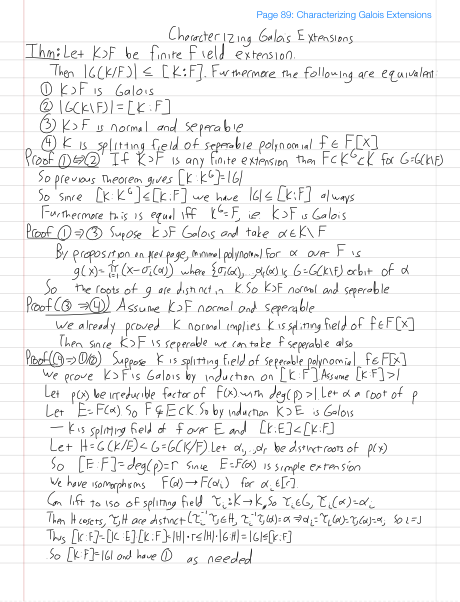 Page 89: Characterizing Galois Extensions
Characterizing Galois Extensions
Thm: Let K⊃F be finite field extension.
Then |G(K/F)| ≤ [K:F]. Furthermore the following are equivalent
① K⊃F is Galois
② |G(K\F)| = [K:F]
③ K⊃F is normal and seperable
④ K is splitting field of seperable polynomial f∈F[x]
Proof ①⇔② If K⊃F is any finite extension then F⊂K^G⊂K for G=G(K\F)
So previous theorem gives [K:K^G]=|G|
So since [K:K^G]≤[K:F] we have |G|≤[K:F] always
Furthermore this is equal iff K^G=F, ie K⊃F is Galois
Proof ①⇒③ Supose K⊃F Galois and take α∈K\F
By proposition on prev page, minimal polynomial for α over F is
g(x)=∏(x-σ_i(α)) where {σ_1(α),...,σ_r(α)} is G=G(K\F) orbit of α
So the roots of g are distinct in K. So K⊃F normal and seperable
Proof (③⇒④) Assume K⊃F normal and seperable
We already proved K normal implies K is splitting field of f∈F[x]
Then since K⊃F is seperable we can take f seperable also
Proof(④⇒①/②) Suppose K is splitting field of seperable polynomial f∈F[x]
We prove K⊃F is Galois by induction on [K:F] Assume [K:F]>1
Let p(x) be irreducible factor of f(x) with deg(p)>1 Let α a root of p
Let E=F(α) So F⊊E⊂K. So by induction K⊃E is Galois
— K is splitting field of f over E and [K:E]<[K:F]
Let H=G(K/E)<G=G(K/F) Let α_1,..,α_r be distinct roots of p(x)
So [E:F]=deg(p)=r since E=F(α) is simple extension
We have isomorphisms F(α)→F(α_i) for α_i∈[r].
Can lift to iso of splitting field τ_i:K→K, So τ_i∈G, τ_i(α)=α_i
Then H cosets, τ_iH are distinct (τ_i^-1τ_j∈H, τ_i^-1τ_j(α)=α ⇒ α_i=τ_i(α)=τ_j(α)=α_j so i=j
Thus [K:F]=[K:E][E:F]=|H|·r≤|H|·|G:H|=|G|≤[K:F]
So [K:F]=|G| and have ① as needed